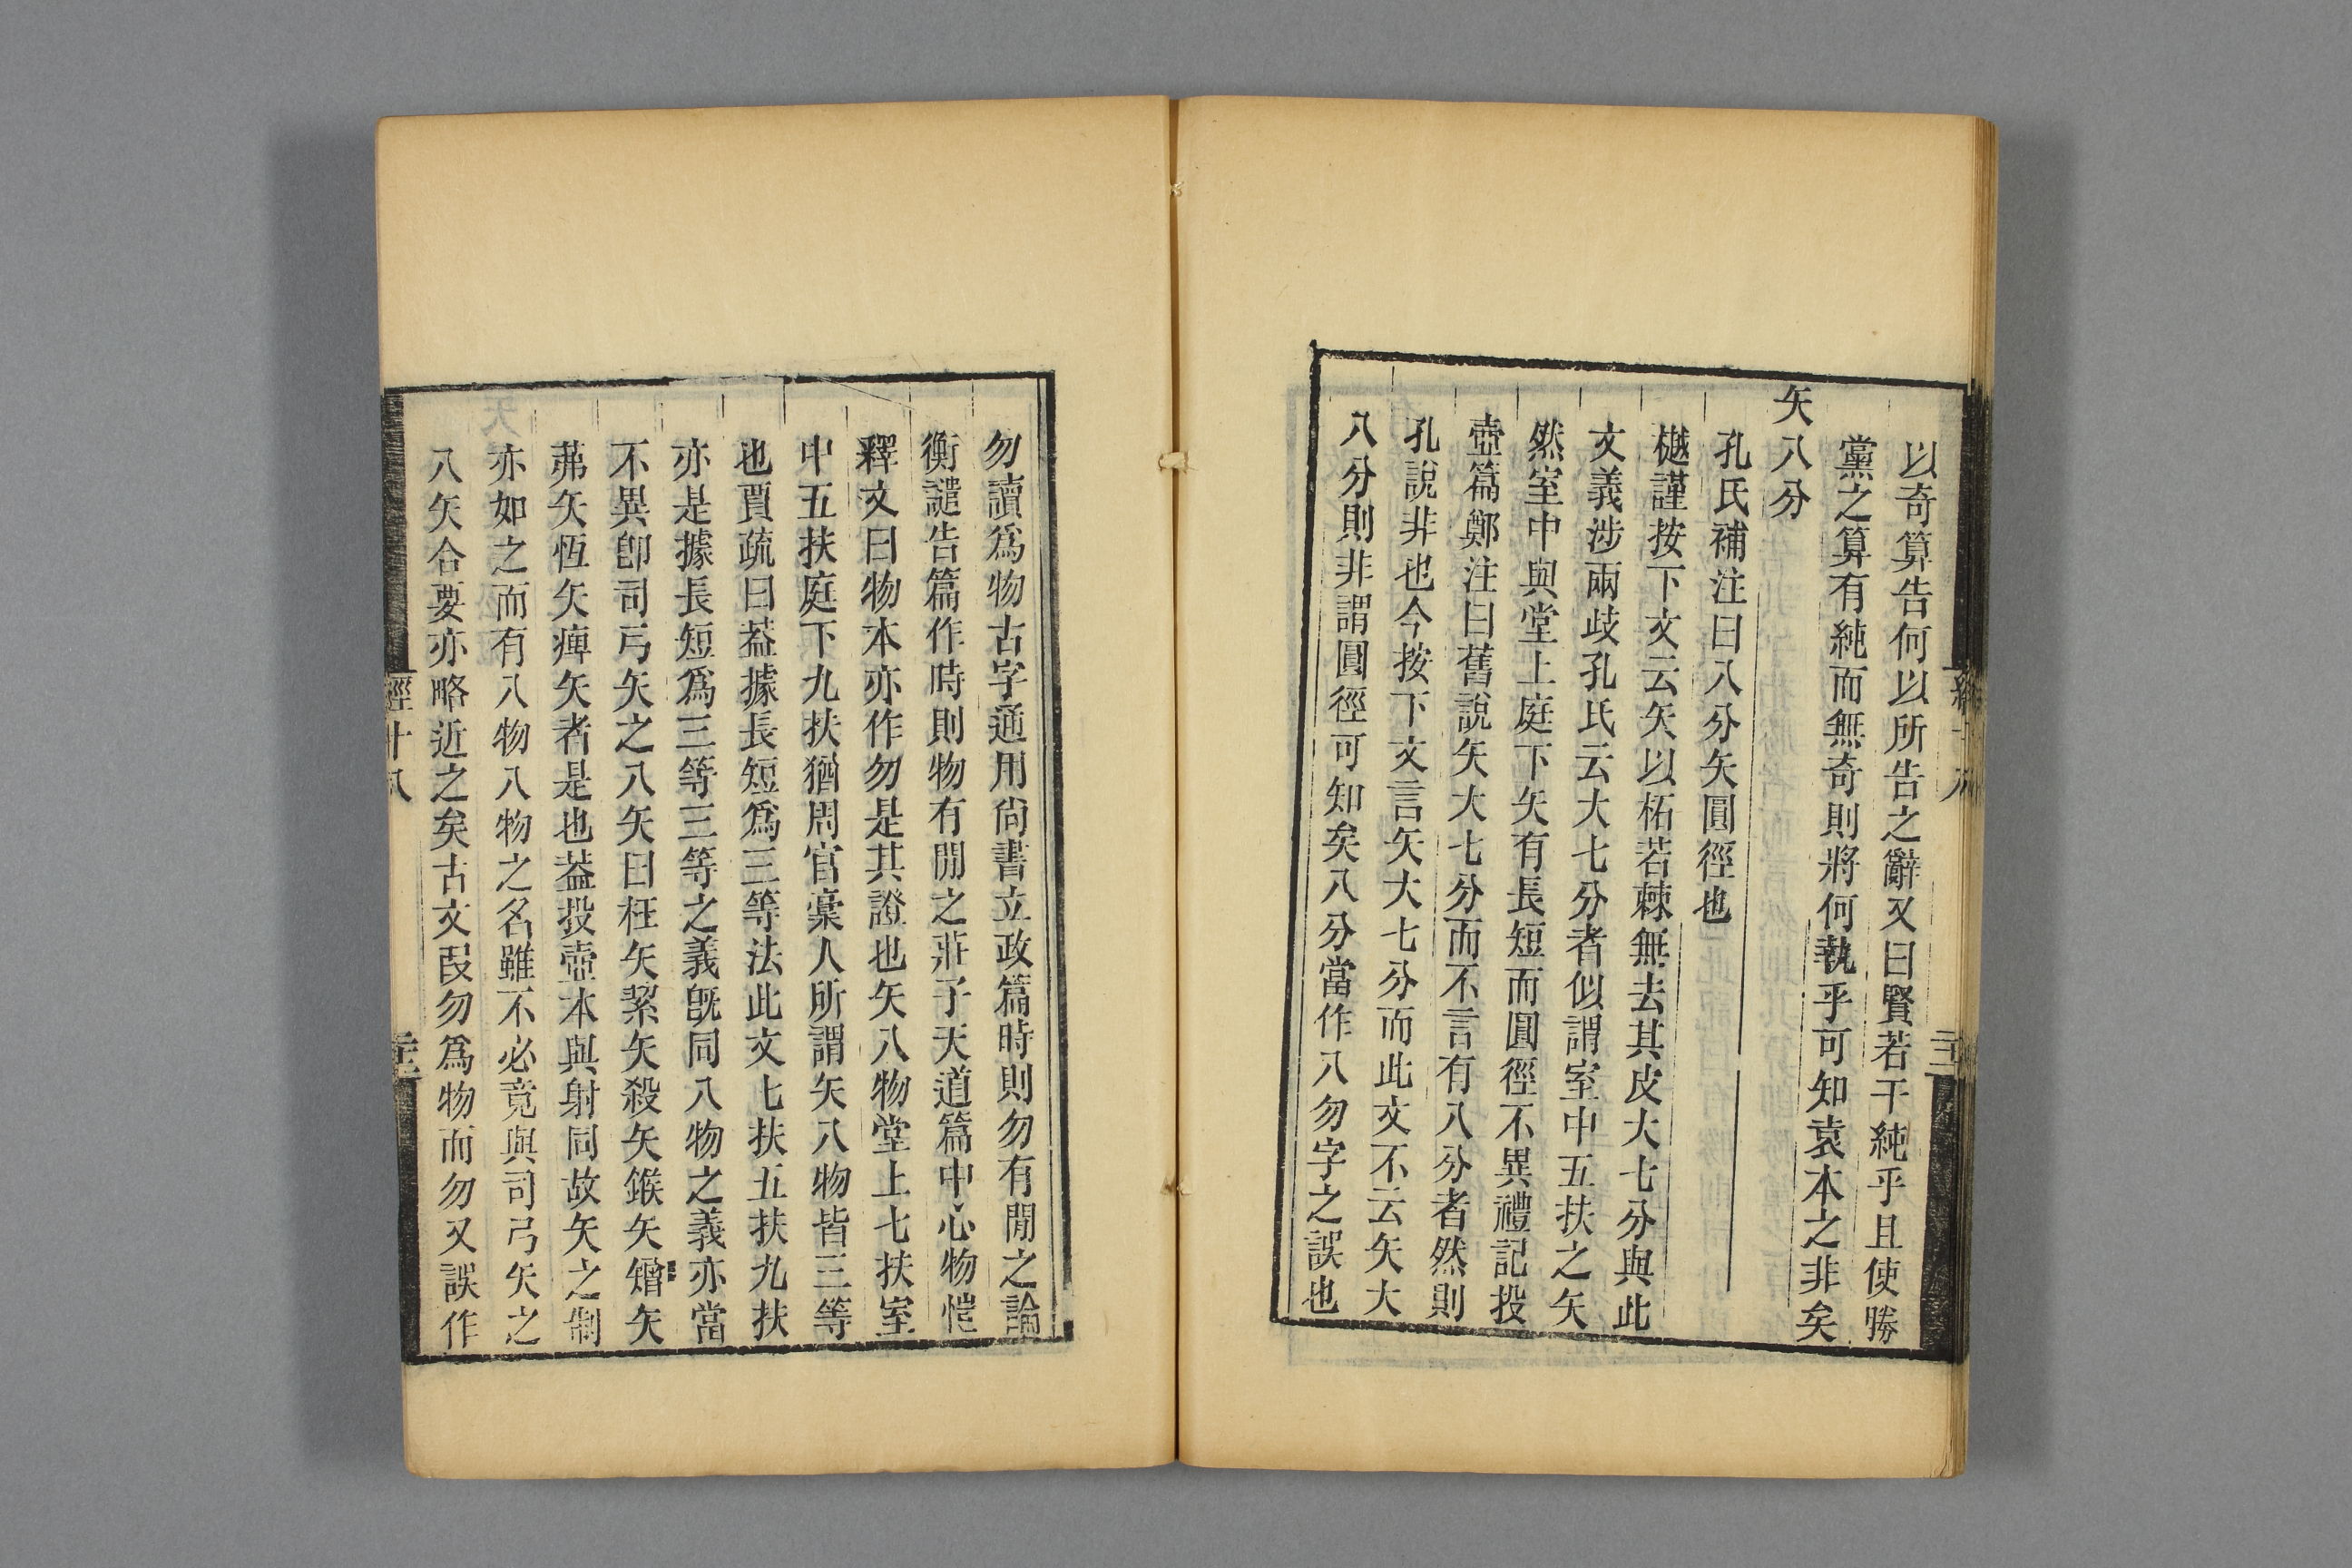 以奇算告何以所告之辭又曰賢若干純乎且使勝
黨之算有純而無奇則將何執乎可知袁本之非矣
矢八分
孔氏補注曰八分矢圓徑也
樾謹按下文云矢以柘若棘無去其皮大七分與此
文義涉兩歧孔氏云大七分者似謂室中五扶之矢
然室中與堂上庭下矢有長短而圓徑不異禮記投
壺篇鄭注曰舊說矢大七分而不言有八分者然則
孔說非也今按下文言矢大七分而此文不云矢大
八分則非謂圓徑可知矣八分當作八勿字之誤也
勿讀爲物古字通用尙書立政篇時則勿有閒之論
衡譴告篇作時則物有閒之莊子天道篇中心物愷
釋文曰物本亦作勿是其證也矢八物堂上七扶室
中五扶庭下九扶猶周官槀人所謂矢八物皆三等
也賈疏曰葢據長短爲三等法此文七扶五扶九扶
亦是據長短爲三等三等之義旣同八物之義亦當
不異卽司弓矢之八矢曰枉矢絜矢殺矢鍭矢矰矢
茀矢恆矢痺矢者是也葢投壺本與射同故矢之制
亦如之而有八物八物之名雖不必竟與司弓矢之
八矢合要亦略近之矣古文叚勿爲物而勿又誤作
經十八